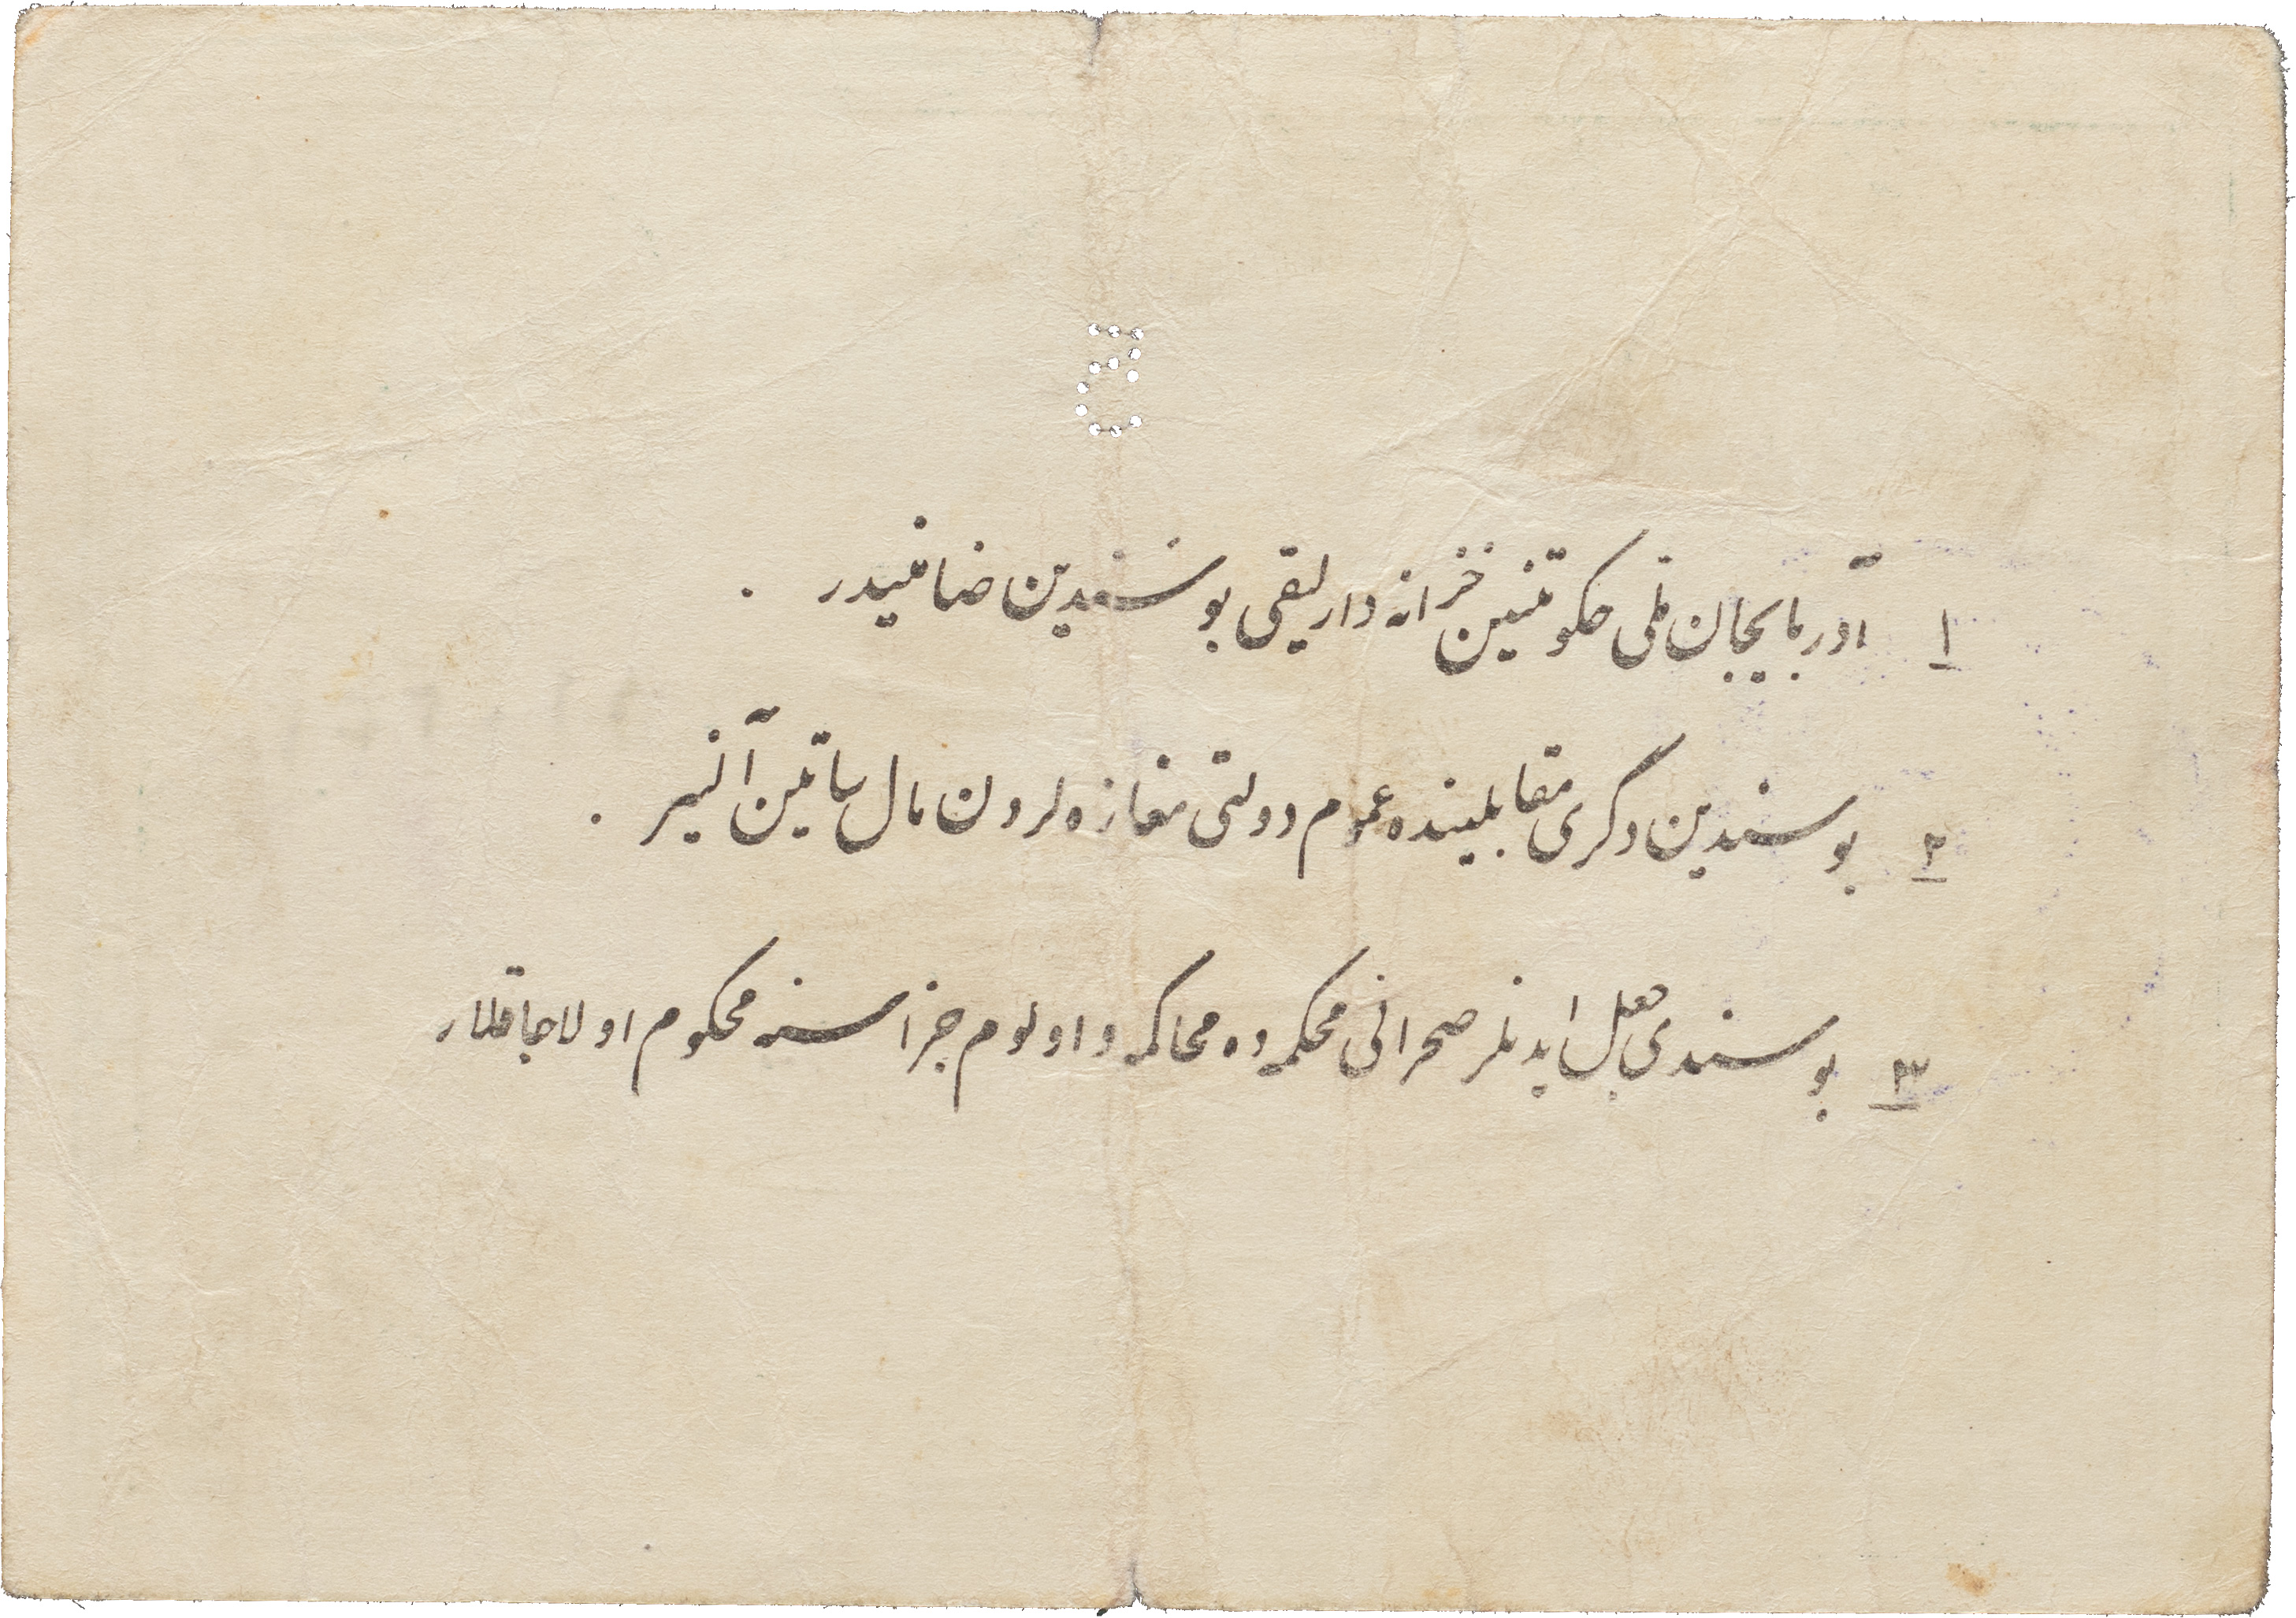 ١ آذربایجان ملی حکومتنین خزانه دارلیقی بو سندین ضامنیدر .
٢ بو سندین دگری مقابلینده عموم دولتی مغازه لردن مال ساتین آلنیر .
٣ بو سندی جعل ایدنلر صحرائی محکمه ده محاکمه و اولوم جزاسنه محکوم اولاجاقلار